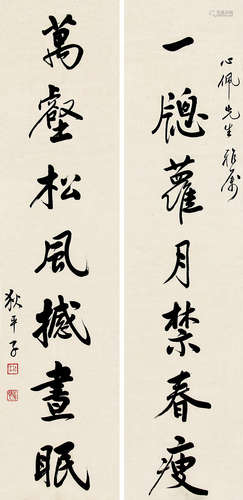 心佩先生雅属
一牕蘿月禁春瘦
萬壑松風撼晝眠
狄平子